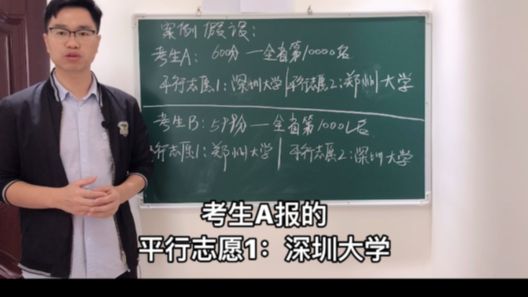 案例假设：
考生A：600分—全省第10000名
平行志愿1：深圳大学|平行志愿2：郑州大学
考生B：599分—全省第10001名
行志愿1：郑州大学|平行志愿2：深圳大学
考生A报的
平行志愿1：深圳大学